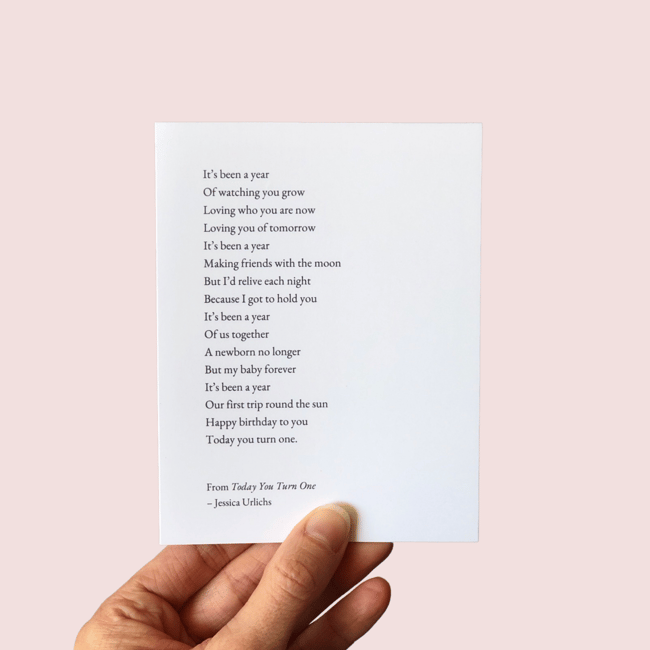 It's been a year
Of watching you grow
Loving who you are now
Loving you of tomorrow
It's been a year
Making friends with the moon
But I'd relive each night
Because I got to hold you
It's been a year
Of us together
A newborn no longer
But my baby forever
It's been a year
Our first trip round the sun
Happy birthday to you
Today you turn one.
From Today You Turn One
– Jessica Urlichs